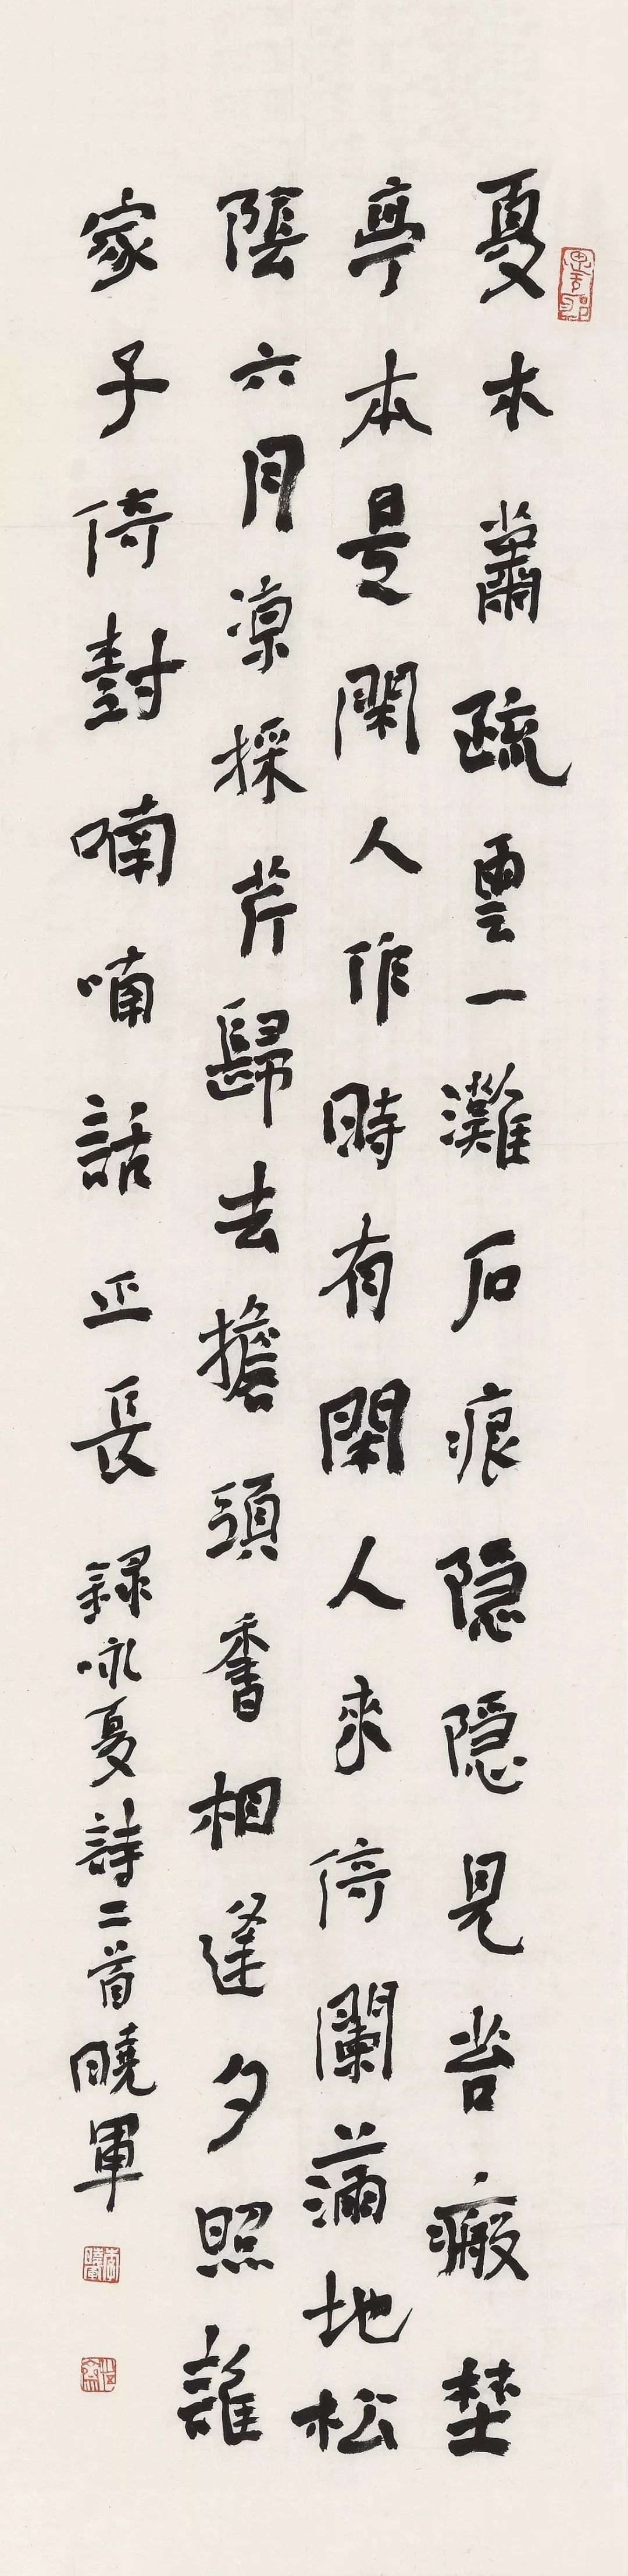 夏木蕭疏雲一灘石痕隐隐見苔瘢埜
亭本是閑人作時有閑人來倚闌滿地松
陰六月涼採芹歸去擔頭香相逢夕照誰
家子倚對喃喃話正長錄咏夏詩二首曉軍